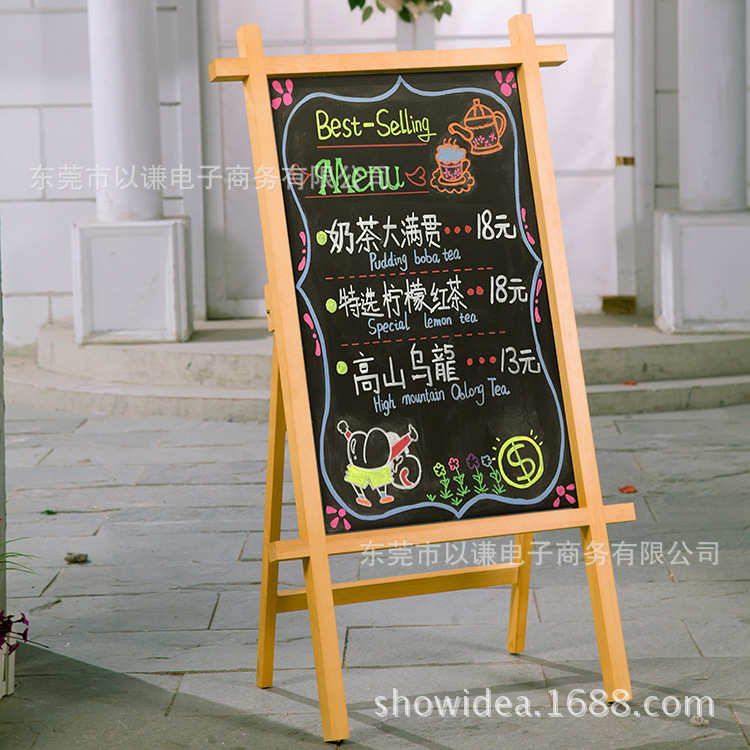 Best-Selling
Menu
东莞市以谦电子商务有限公司
奶茶大满贯•••18元
Pudding boba tea
特选柠檬红茶••18元
Special lemon tea
高山乌龍•••13元
High mountain Oolong Tea
$
东莞市以谦电子商务有限公司
showidea.1688.com